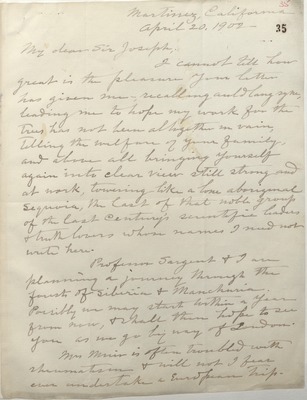 35
Martinez, California
April 20, 1902
My dear Sir Joseph,
I cannot tell how
great is the pleasure your letter
has given me, recalling auld lang syne,
leading me to hope my work for the
trees has not been altogether in vain,
telling the welfare of your family,
and above all bringing yourself
again into clear view still strong and
at work, towering like a lone aboriginal
Sequoia, the last of that noble group
of the last Century's scientific leaders
& truth lovers whose names I need not
write here.
Professor Sargent & I are
planning a journey through the
forests of Siberia & Manchuria.
Possibly we may start within a year
from now, & shall then hope to see
you as we go by way of London.
Mrs Muir is often troubled with
rheumatism & will not I fear
ever undertake a European trip.